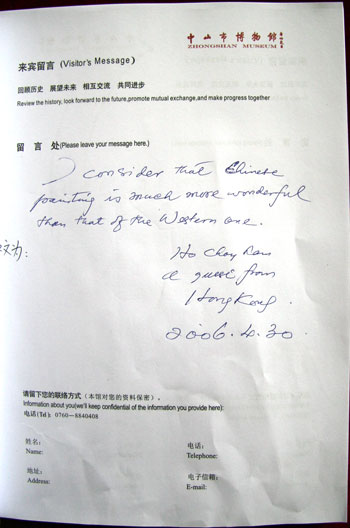 中山市博物館
ZHONGSHAN MUSEUM
来宾留言 (Visitor's Message)
回顾历史 展望未来 相互交流 共同进步
Review the history, look forward to the future,promote mutual exchange,and make progress together
留 言 处(Please leave your message here.)
I consider that Chinese
painting is much more wonderful
than that of the Western one.
Ho Chay
a guest from
Hong Kong.
2006.4.30.
文为:
请留下您的联络方式(本馆对您的资料保密)。
Information about you(we'll keep confidential of the information you provide here):
电话(Tel): 0760—8840408
姓名:
Name:
电话:
Telephone:
地址:
Address:
电子信箱:
E-mail: